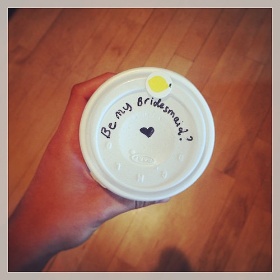 Be my Bridesmaid?